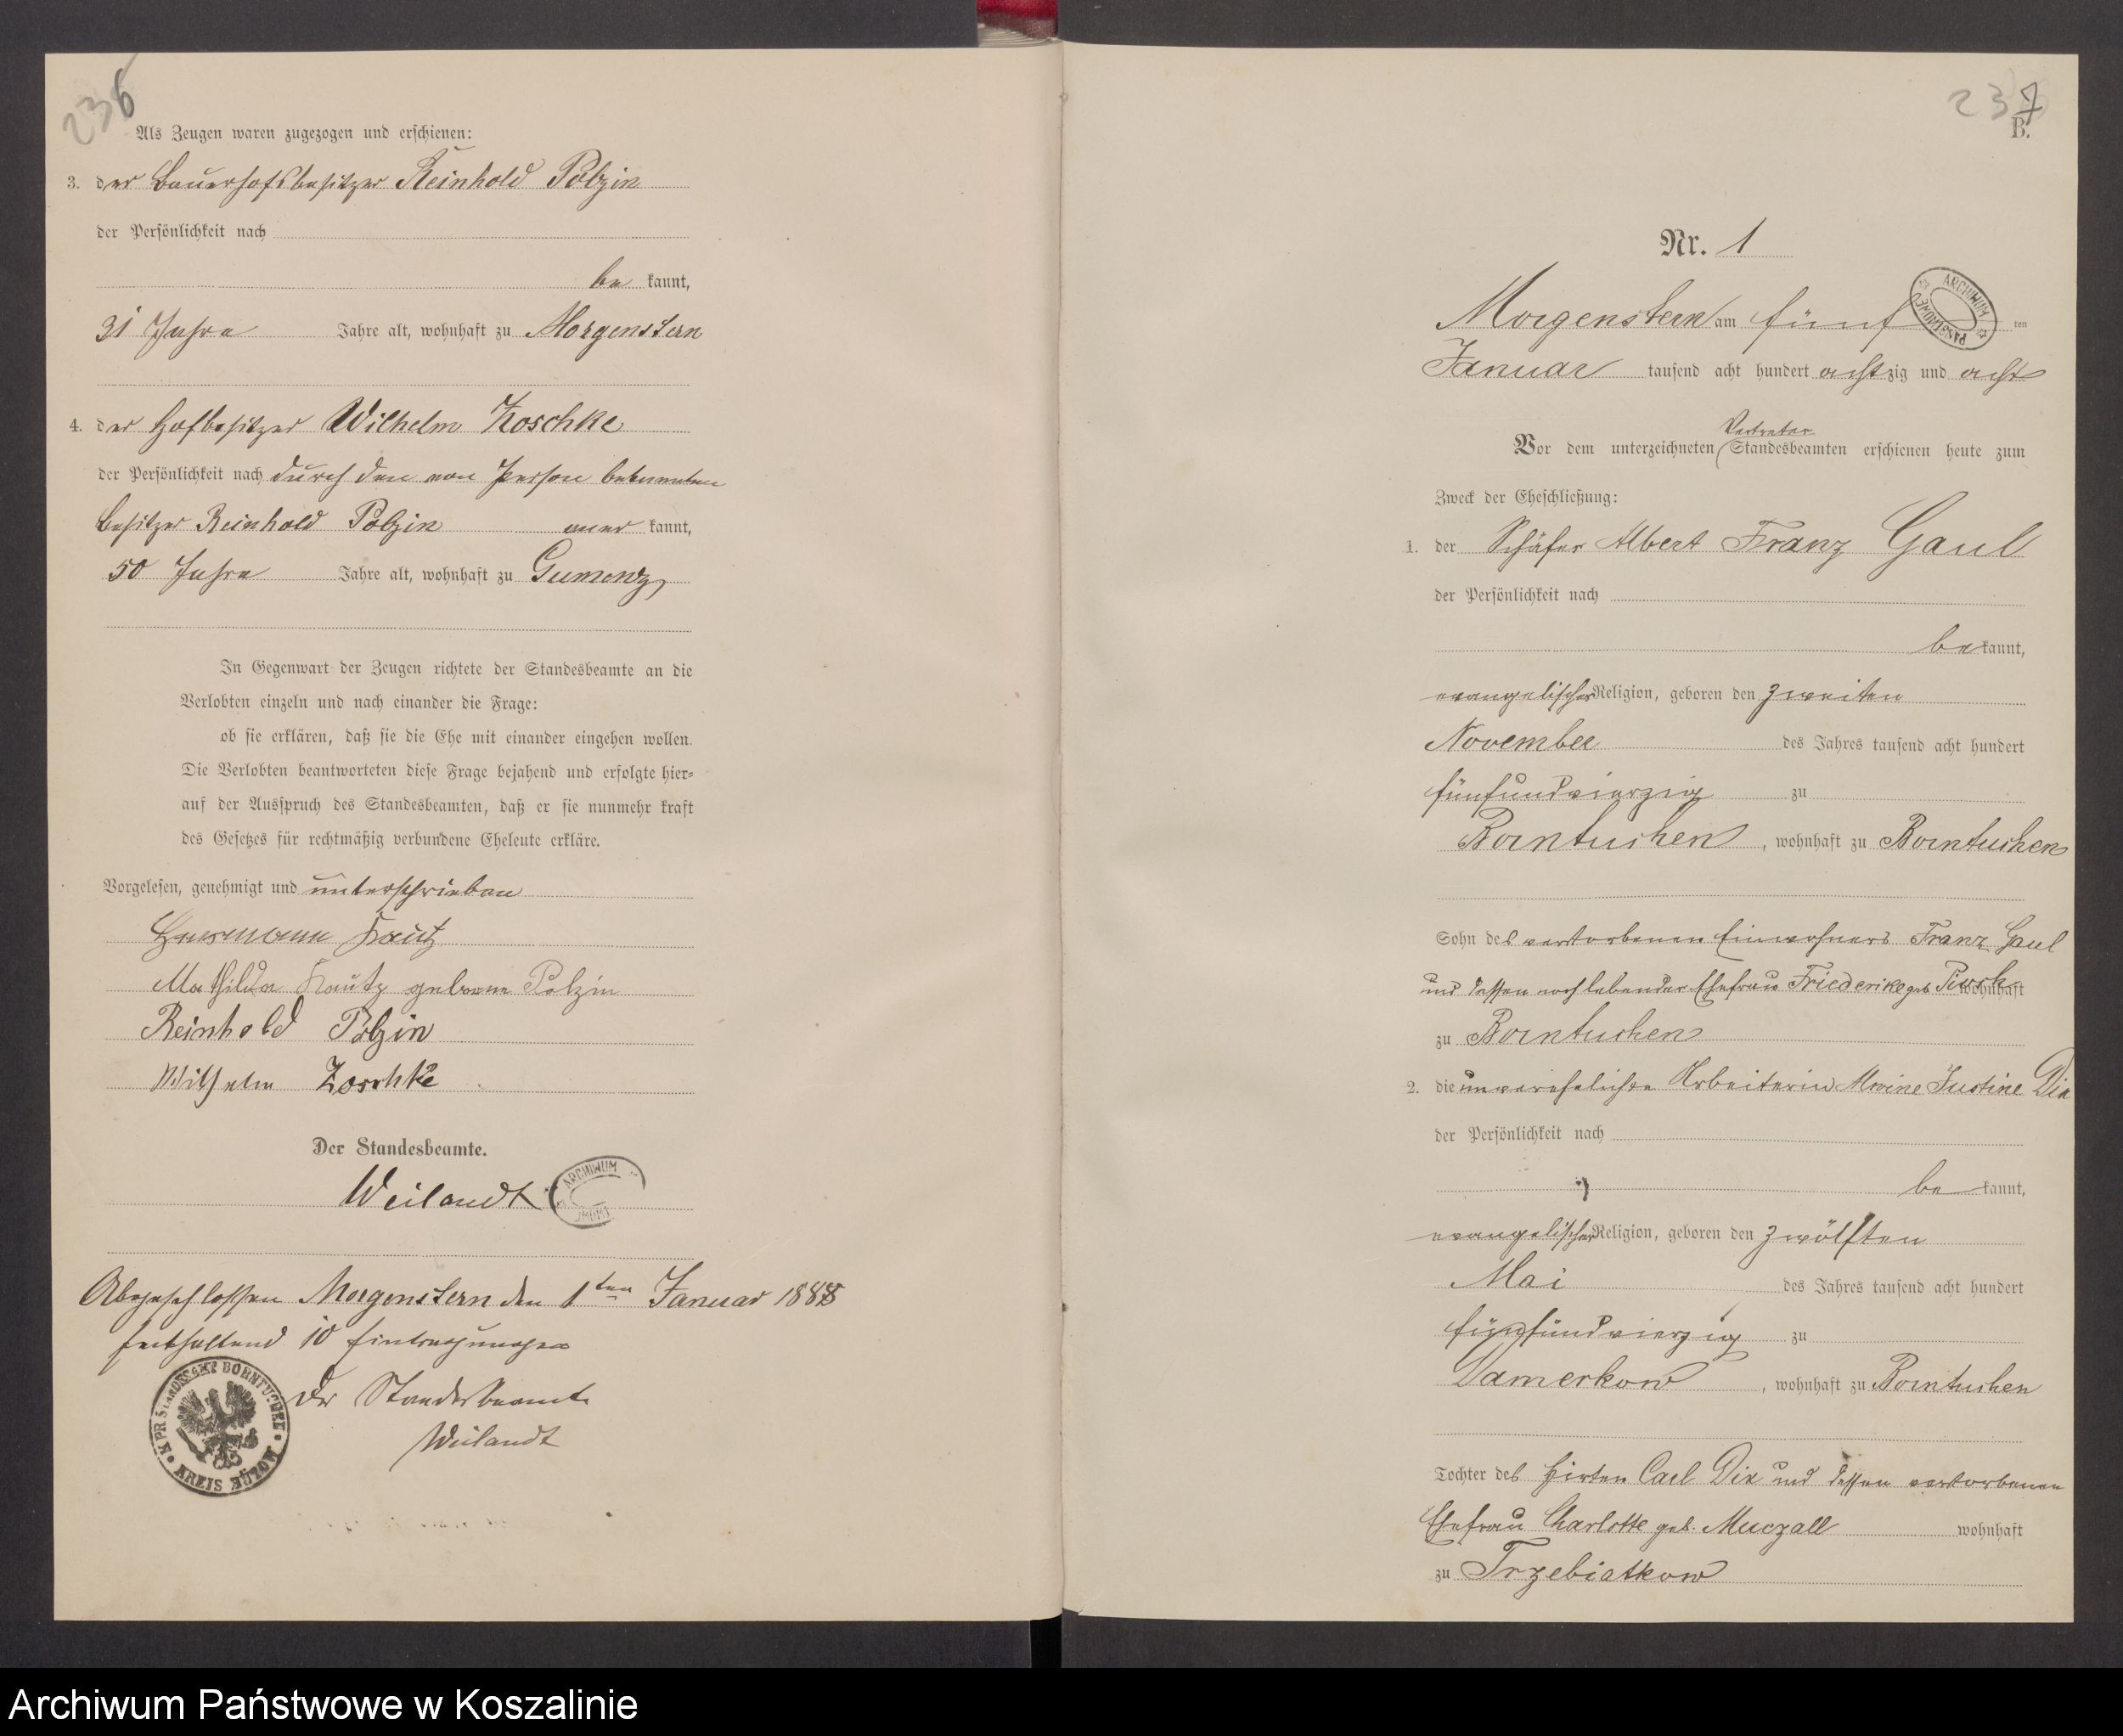 236
Als Zeugen waren zugezogen und erschienen:
3. der Bauerhofsbesitzer Reinhold Polzin
der Persönlichkeit nach
be kannt,
31 Jahre Jahre alt, wohnhaft zu Morgenstern
4. der Hofbesitzer Wilhelm Zoschke
der Persönlichkeit nach durch den von Person bekannten
Besitzer Reinhold Polzin aner kannt,
50 Jahre Jahre alt, wohnhaft zu Gumenz,
In Gegenwart der Zeugen richtete der Standesbeamte an die
Verlobten einzeln und nach einander die Frage:
ob sie erklären, daß sie die Ehe mit einander eingehen wollen.
Die Verlobten beantworteten diese Frage bejahend und erfolgte hier-
auf der Ausspruch des Standesbeamten, daß er sie nunmehr kraft
des Gesetzes für rechtmäßig verbundene Eheleute erkläre.
Vorgelesen, genehmigt und unterschrieben
Herrmann Kautz
Mathilda Kautz geborne Polzin
Reinhold Polzin
Wilhelm Zoschke
Der Standesbeamte.
Weilandt
ARCHIWUM
Abgeschlossen Morgenstern den 1ten Januar 1888
enthaltend 10 Eintragungen
Der Standesbeamte
Weilandt
K. PR. STANDESAMT BORNTUCHEN KREIS BÜTOW
237
B.
Nr. 1
ARCHIWUM PAŃSTWOWE
Morgenstern am fünf ten
Januar tausend acht hundert achtzig und acht
Vertreter
Vor dem unterzeichneten Standesbeamten erschienen heute zum
Zweck der Eheschließung:
1. der Schäfer Albert Franz Gaul
der Persönlichkeit nach
be kannt,
evangelischer Religion, geboren den zweiten
November des Jahres tausend acht hundert
fünfundvierzig zu
Borntuchen, wohnhaft zu Borntuchen
Sohn des verstorbenen Einwohners Franz Gaul
und dessen noch lebender Ehefrau Friederike geb. wohnhaft
zu Borntuchen
2. die unverehelichte Arbeiterin Justine Dix
der Persönlichkeit nach
be kannt,
evangelischer Religion, geboren den zwölften
Mai des Jahres tausend acht hundert
fünfundvierzig zu
Damerkow, wohnhaft zu Borntuchen
Tochter des Hirten Carl Dix und dessen verstorbenen
Ehefrau Charlotte geb. Muczall wohnhaft
zu Trzebiatkow
Archiwum Państwowe w Koszalinie